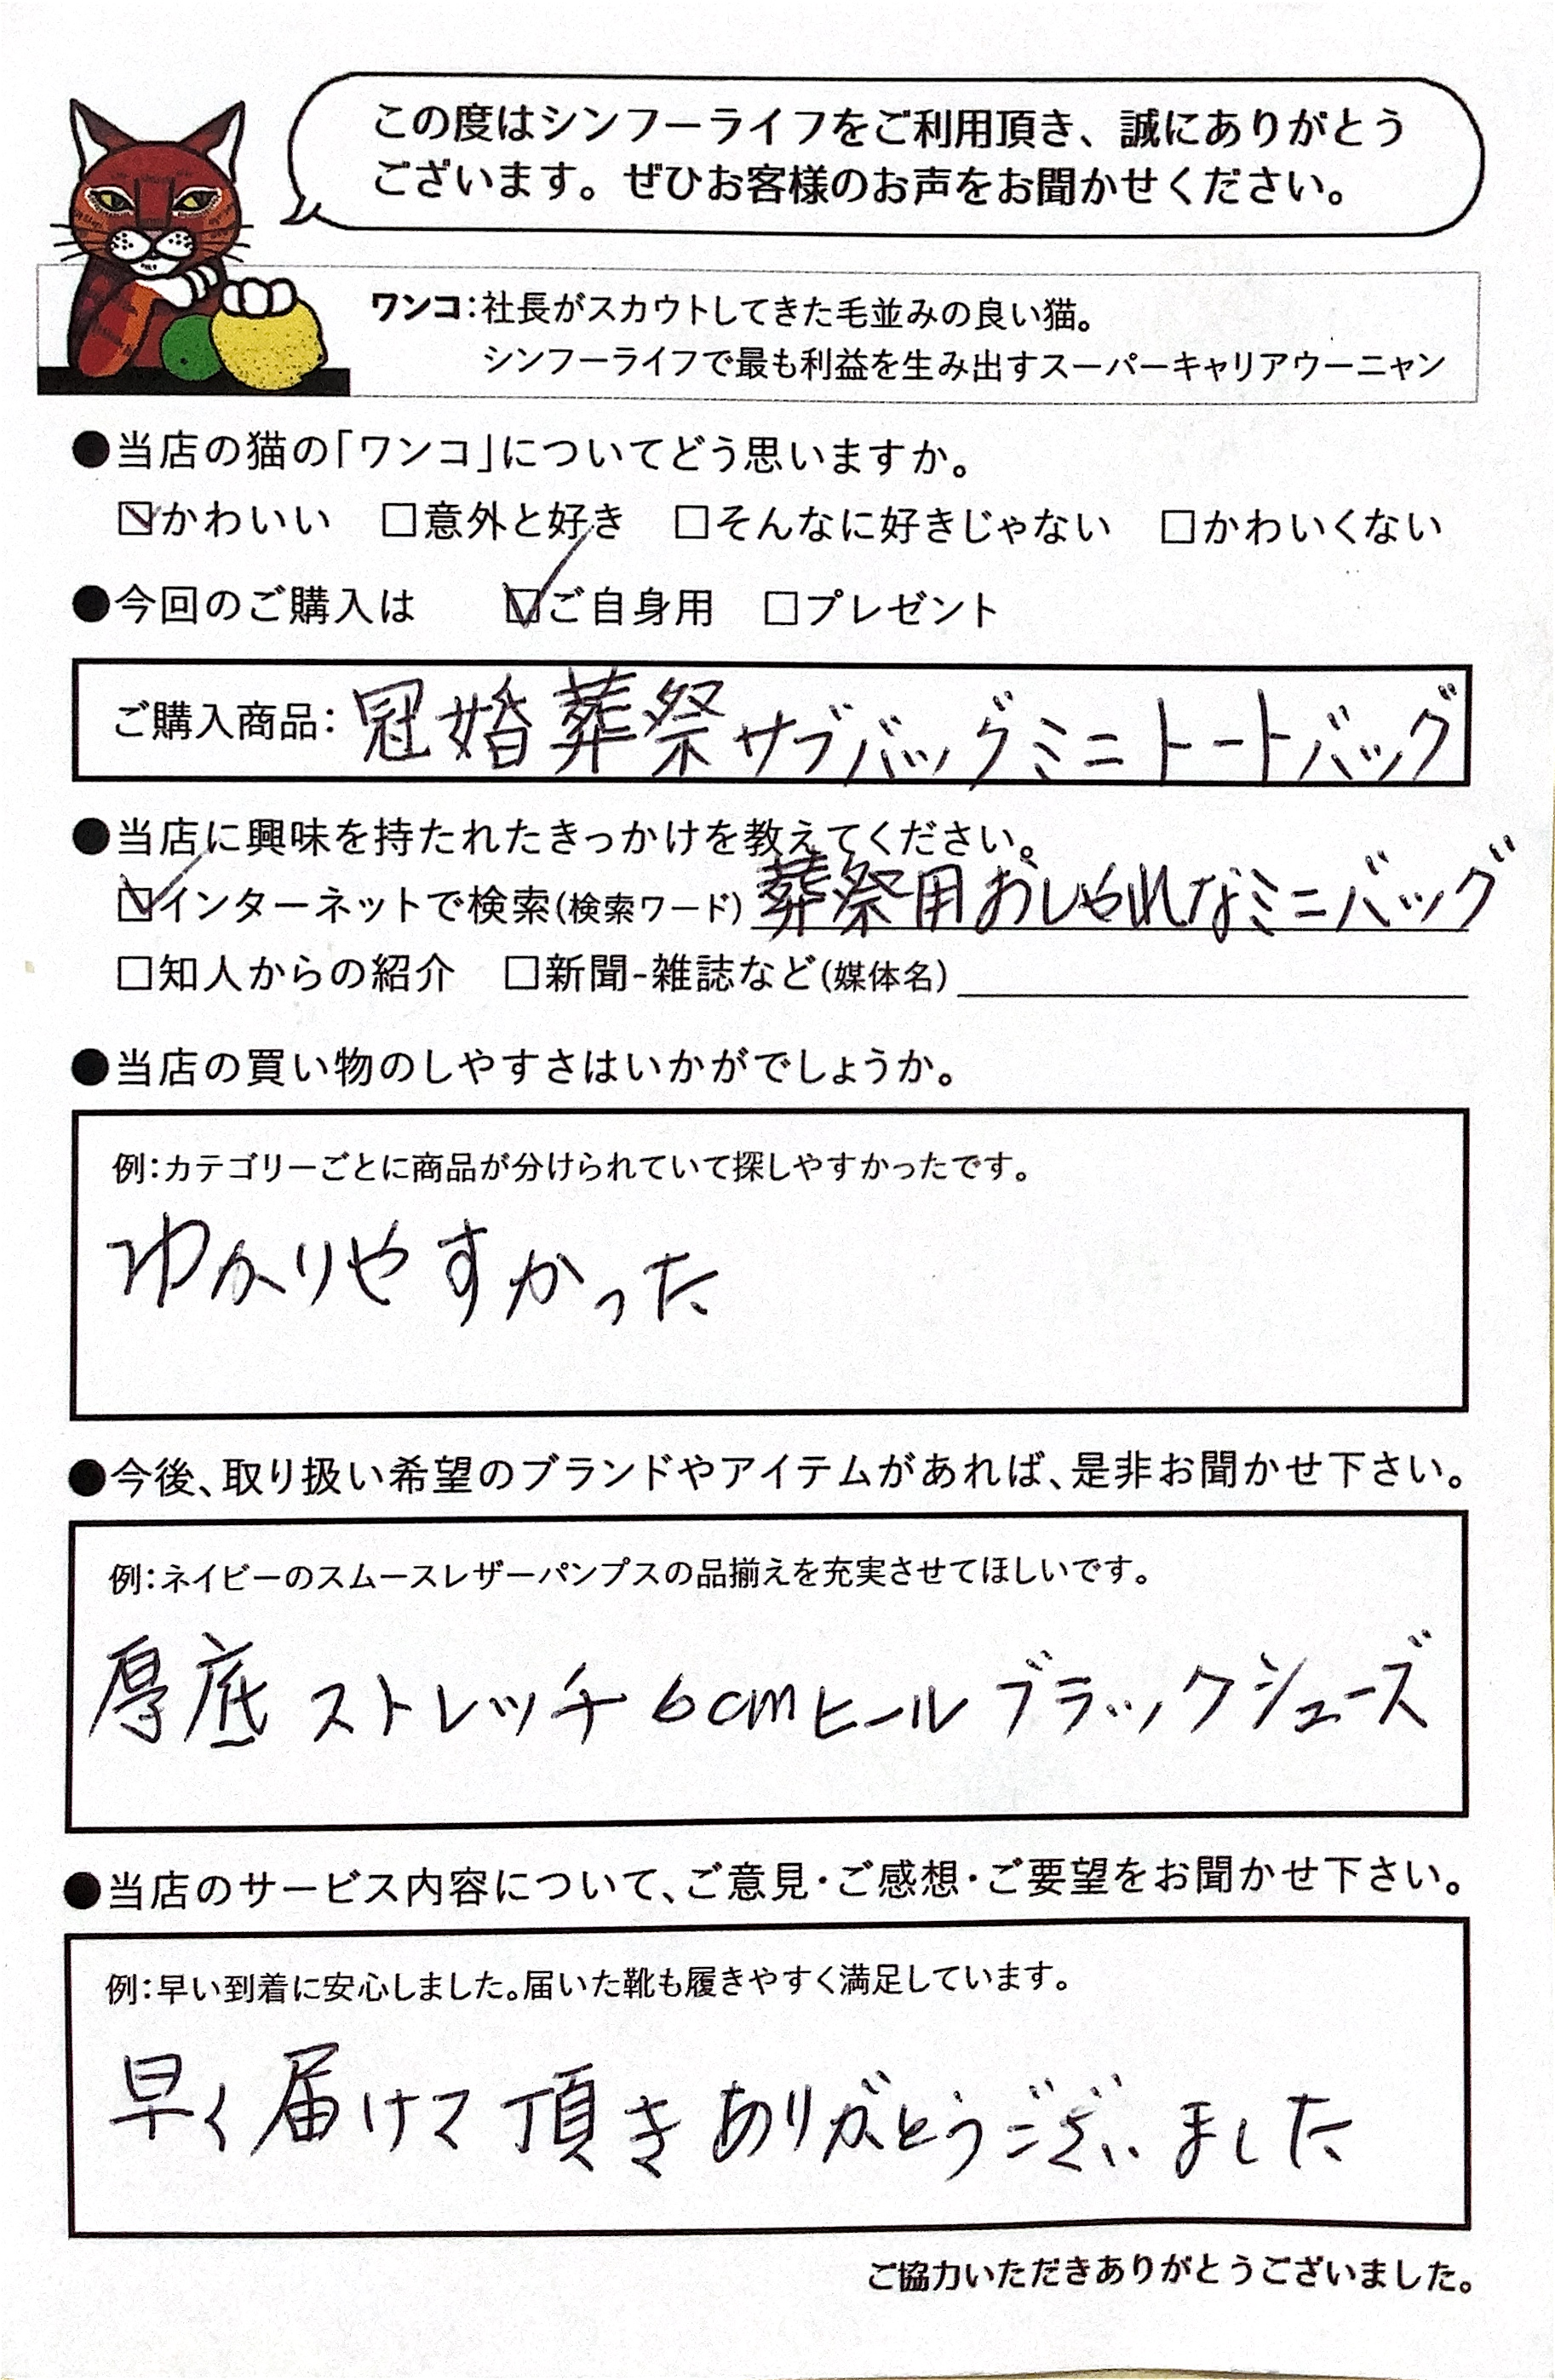 この度はシンフーライフをご利用頂き、誠にありがとう
ございます。ぜひお客様のお声をお聞かせください。
ワンコ：社長がスカウトしてきた毛並みの良い猫。
シンフーライフで最も利益を生み出すスーパーキャリアウーニャン
●当店の猫の「ワンコ」についてどう思いますか。
☑かわいい □意外と好き □そんなに好きじゃない □かわいくない
●今回のご購入は ☑ご自身用 □プレゼント
ご購入商品：冠婚葬祭サブバッグミニトートバッグ
●当店に興味を持たれたきっかけを教えてください。
☑インターネットで検索(検索ワード) 葬祭用おしゃれなミニバッグ
□知人からの紹介 □新聞-雑誌など(媒体名)
●当店の買い物のしやすさはいかがでしょうか。
例：カテゴリーごとに商品が分けられていて探しやすかったです。
わかりやすかった
●今後、取り扱い希望のブランドやアイテムがあれば、是非お聞かせ下さい。
例：ネイビーのスムースレザーパンプスの品揃えを充実させてほしいです。
厚底 ストレッチ 6cmヒール ブラックシューズ
●当店のサービス内容について、ご意見・ご感想・ご要望をお聞かせ下さい。
例：早い到着に安心しました。届いた靴も履きやすく満足しています。
早く届けて頂きありがとうございました
ご協力いただきありがとうございました。